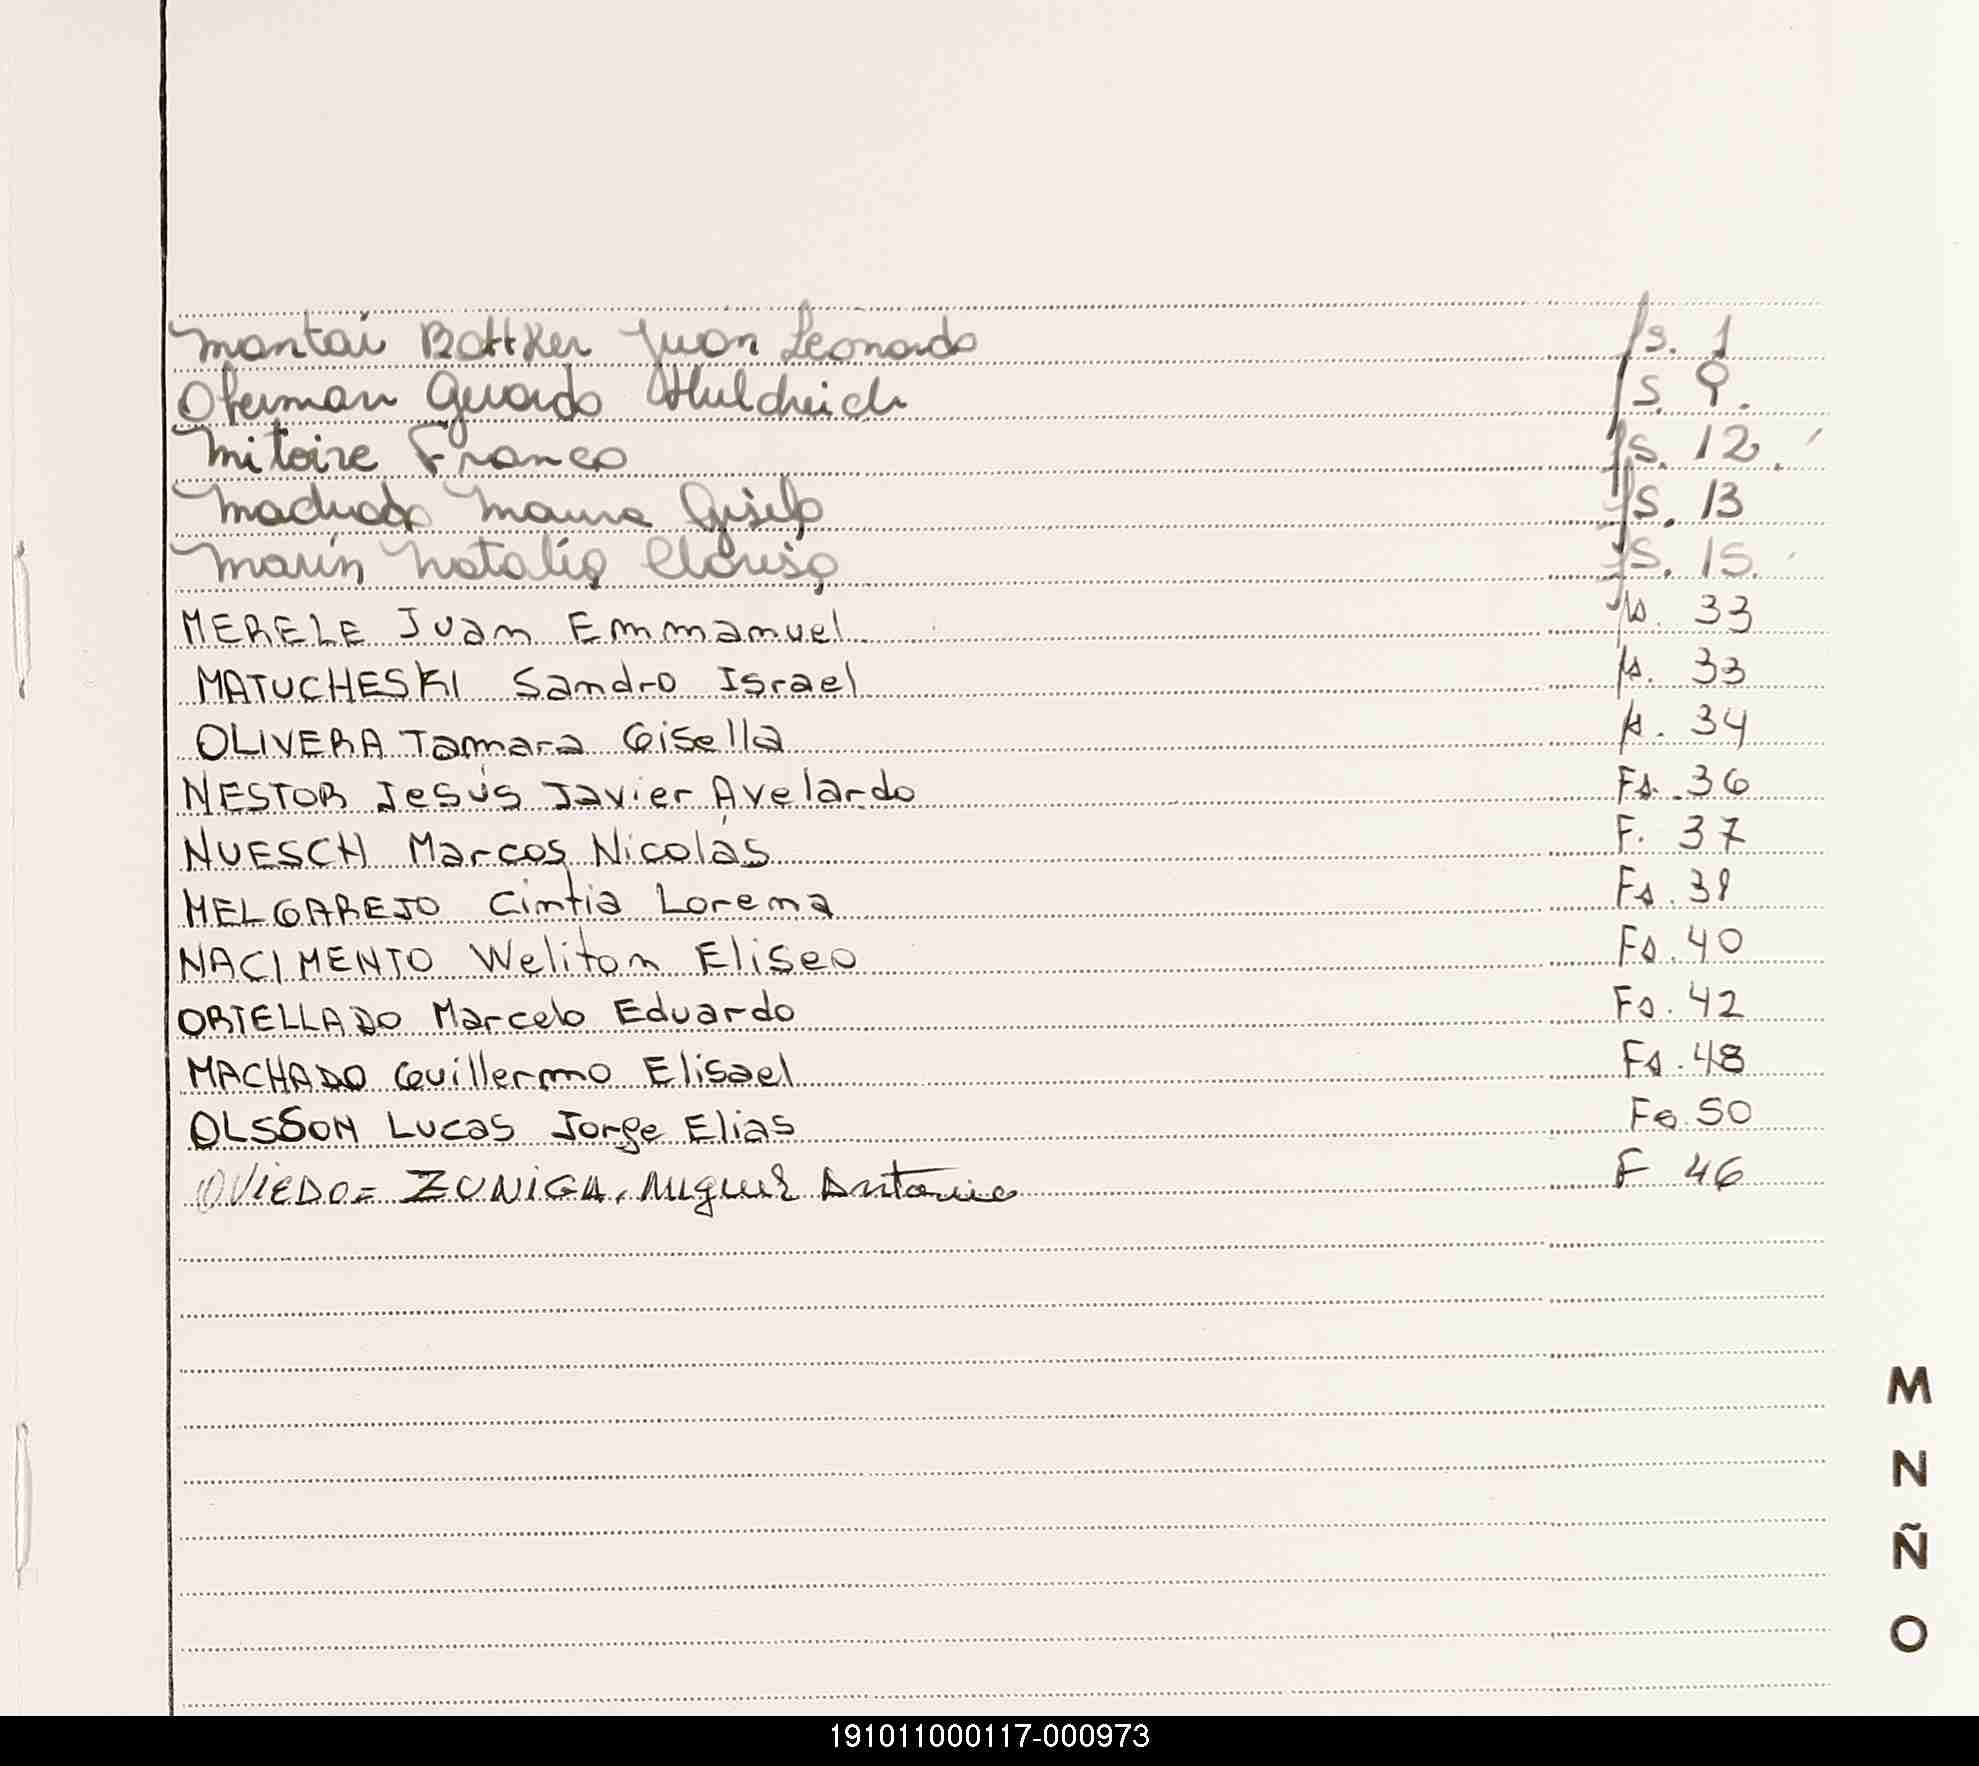 Mantai Bottker Juan Leonardo fs. 1
Oferman Gerardo Huldreich fs. 9.
Mitoire Franco fs. 12.
Machado Maura Gisela fs. 13
Marín Natalia Clarisa fs. 15.
MERELE Juan Emmanuel fs. 33
MATUCHESKI Sandro Israel fs. 33
OLIVERA Tamara Gisella fs. 34
NESTOR Jesús Javier Avelardo Fs. 36
NUESCH Marcos Nicolás F. 37
MELGAREJO Cintia Lorena Fs. 38
NACIMENTO Weliton Eliseo Fs. 40
ORTELLADO Marcelo Eduardo Fs. 42
MACHADO Guillermo Elisael Fs. 48
OLSSON Lucas Jorge Elias Fs. 50
OVIEDO= ZUNIGA, Miguel Antonio F 46
M
N
Ñ
O
191011000117-000973